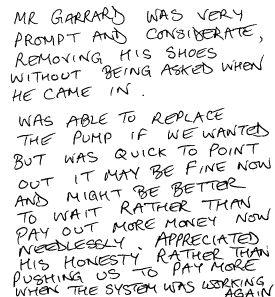 MR GARRARD WAS VERY
PROMPT AND CONSIDERATE,
REMOVING HIS SHOES
WITHOUT BEING ASKED WHEN
HE CAME IN.
WAS ABLE TO REPLACE
THE PUMP IF WE WANTED
BUT WAS QUICK TO POINT
OUT IT MAY BE FINE NOW
AND MIGHT BE BETTER
TO WAIT RATHER THAN
PAY OUT MORE MONEY NOW
NEEDLESSLY. APPRECIATED
HIS HONESTY RATHER THAN
PUSHING US TO PAY MORE
WHEN THE SYSTEM WAS WORKING
AGAIN